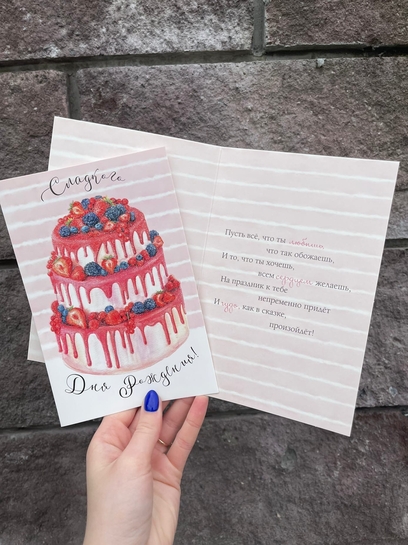 Сладкого
Дня Рождения!
Пусть всё, что ты любишь,
что так обожаешь,
И то, что ты хочешь,
всем сердцем желаешь,
На праздник к тебе
непременно придёт
И чудо, как в сказке,
произойдёт!